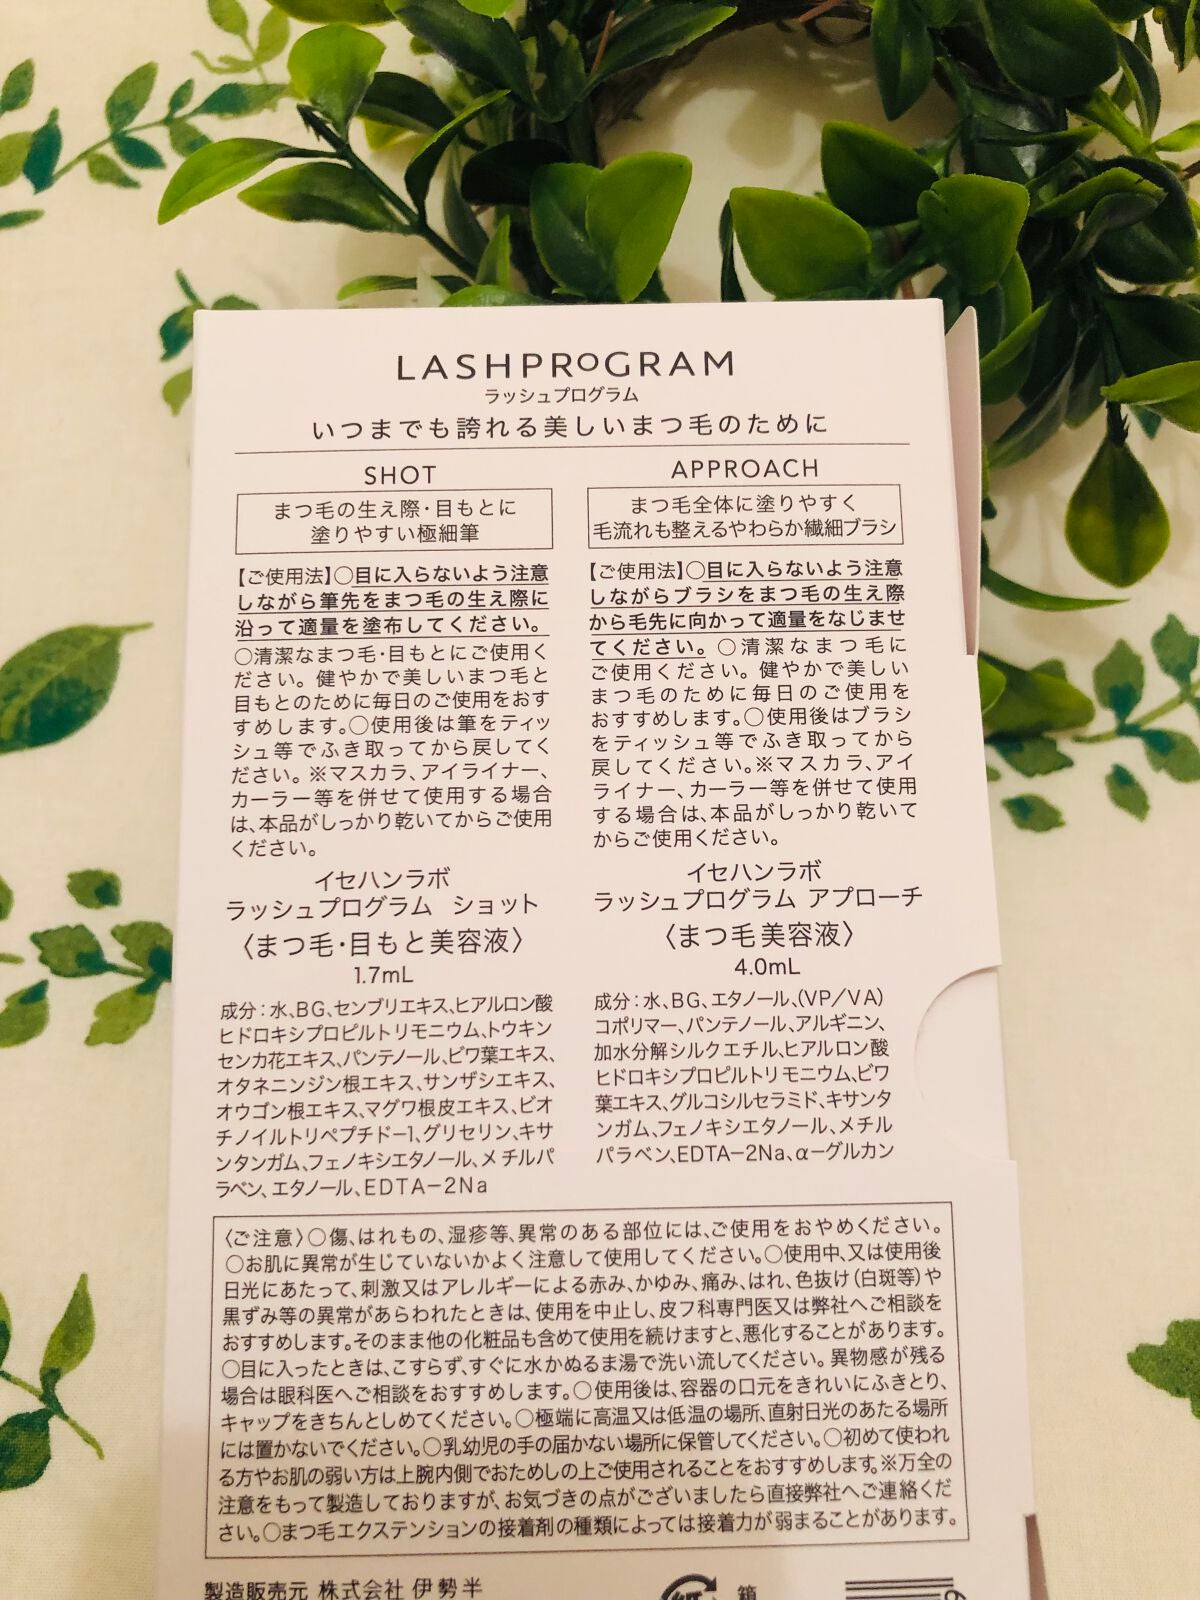 LASHPROGRAM
ラッシュプログラム
いつまでも誇れる美しいまつ毛のために
SHOT
まつ毛の生え際・目もとに
塗りやすい極細筆
【ご使用法】○目に入らないよう注意
しながら筆先をまつ毛の生え際に
沿って適量を塗布してください。
○清潔なまつ毛・目もとにご使用く
ださい。健やかで美しいまつ毛と
目もとのために毎日のご使用をおす
すめします。○使用後は筆をティッ
シュ等でふき取ってから戻してく
ださい。※マスカラ、アイライナー、
カーラー等を併せて使用する場合
は、本品がしっかり乾いてからご使用
ください。
イセハンラボ
ラッシュプログラム ショット
〈まつ毛・目もと美容液〉
1.7mL
成分：水、BG、センブリエキス、ヒアルロン酸
ヒドロキシプロピルトリモニウム、トウキン
センカ花エキス、パンテノール、ビワ葉エキス、
オタネニンジン根エキス、サンザシエキス、
オウゴン根エキス、マグワ根皮エキス、ビオ
チノイルトリペプチド-1、グリセリン、キサ
ンタンガム、フェノキシエタノール、メチルパ
ラベン、エタノール、EDTA-2Na
APPROACH
まつ毛全体に塗りやすく
毛流れも整えるやわらか繊細ブラシ
【ご使用法】○目に入らないよう注意
しながらブラシをまつ毛の生え際
から毛先に向かって適量をなじませ
てください。○清潔なまつ毛に
ご使用ください。健やかで美しい
まつ毛のために毎日のご使用を
おすすめします。○使用後はブラシ
をティッシュ等でふき取ってから
戻してください。※マスカラ、アイ
ライナー、カーラー等を併せて使用
する場合は、本品がしっかり乾いて
からご使用ください。
イセハンラボ
ラッシュプログラム アプローチ
〈まつ毛美容液〉
4.0mL
成分：水、BG、エタノール、(VP/VA)
コポリマー、パンテノール、アルギニン、
加水分解シルクエチル、ヒアルロン酸
ヒドロキシプロピルトリモニウム、ビワ
葉エキス、グルコシルセラミド、キサンタ
ンガム、フェノキシエタノール、メチル
パラベン、EDTA-2Na、α-グルカン
〈ご注意〉○傷、はれもの、湿疹等、異常のある部位には、ご使用をおやめください。
○お肌に異常が生じていないかよく注意して使用してください。○使用中、又は使用後
日光にあたって、刺激又はアレルギーによる赤み、かゆみ、痛み、はれ、色抜け(白斑等)や
黒ずみ等の異常があらわれたときは、使用を中止し、皮フ科専門医又は弊社へご相談を
おすすめします。そのまま他の化粧品も含めて使用を続けますと、悪化することがあります。
○目に入ったときは、こすらず、すぐに水かぬるま湯で洗い流してください。異物感が残る
場合は眼科医へご相談をおすすめします。○使用後は、容器の口元をきれいにふきとり、
キャップをきちんとしめてください。○極端に高温又は低温の場所、直射日光のあたる場所
には置かないでください。○乳幼児の手の届かない場所に保管してください。○初めて使われ
る方やお肌の弱い方は上腕内側でおためしの上ご使用されることをおすすめします。※万全の
注意をもって製造しておりますが、お気づきの点がございましたら直接弊社へご連絡くだ
さい。○まつ毛エクステンションの接着剤の種類によっては接着力が弱まることがあります。
製造販売元 株式会社 伊勢半
箱